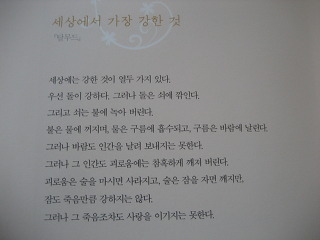 세상에서 가장 강한 것
『탈무드』
세상에는 강한 것이 열두 가지 있다.
우선 돌이 강하다. 그러나 돌은 쇠에 깎인다.
그리고 쇠는 불에 녹아 버린다.
불은 물에 꺼지며, 물은 구름에 흡수되고, 구름은 바람에 날린다.
그러나 바람도 인간을 날려 보내지는 못한다.
그러나 그 인간도 괴로움에는 참혹하게 깨져 버린다.
괴로움은 술을 마시면 사라지고, 술은 잠을 자면 깨지만,
잠도 죽음만큼 강하지는 않다.
그러나 그 죽음조차도 사랑을 이기지는 못한다.